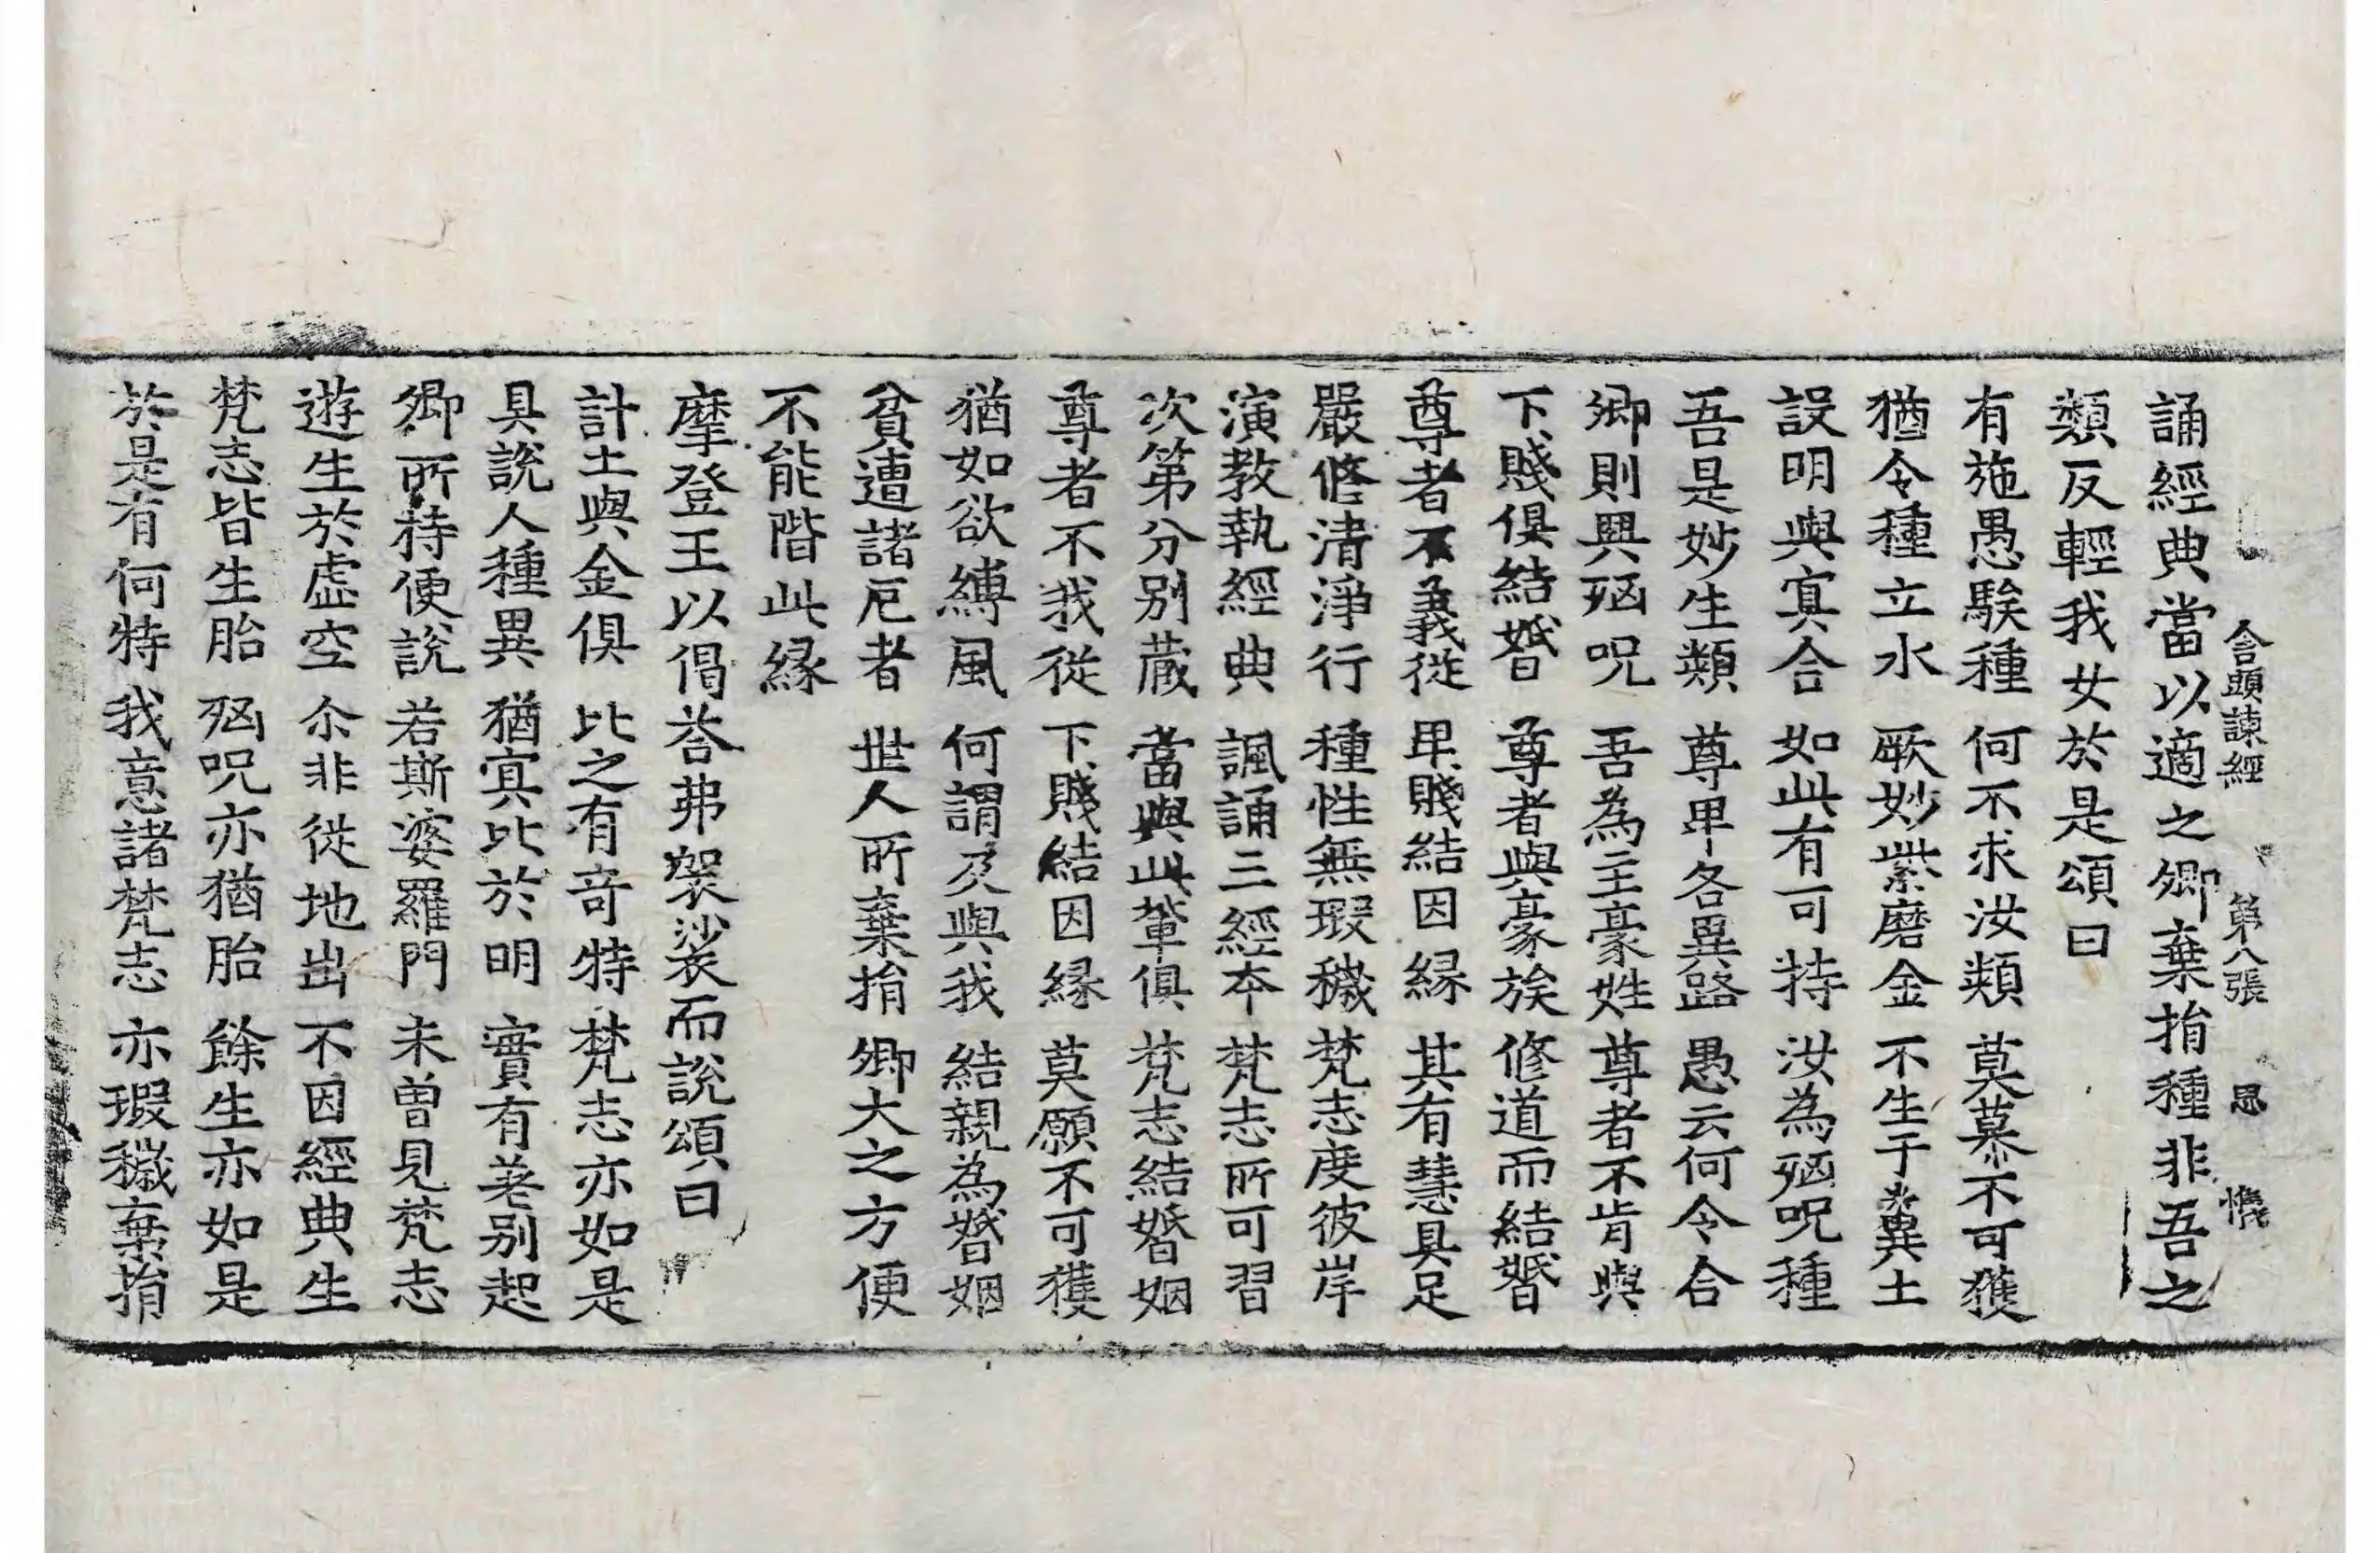 舍頭諫經　第八張　思　㦬
誦經典當以適之卿棄捐種非吾之
類反輕我女於是頌曰
有施愚騃種　何不求汝類　莫慕不可獲
猶令種立水　厥妙紫磨金　不生于糞土
設明與㝠合　如此有可持　汝為㐫呪種
吾是妙生類　尊卑各異路　愚云何令合
卿則興㐫呪　吾為主豪姓　尊者不肯與
下賤俱結㛰　尊者與豪族　修道而結㛰
尊者不義從　卑賤結因縁　其有慧具足
嚴修清淨行　種性無瑕穢　梵志度彼岸
演教執經典　諷誦三經本　梵志所可習
次第分别藏　當與此輩俱　梵志結㛰姻
尊者不我從　下賤結因縁　莫願不可獲
猶如欲縛風　何謂及與我　結親為㛰姻
貧遭諸厄者　世人所棄捐　卿大之方便
不能階此縁
摩登王以偈荅弗袈裟而説頌曰
計土與金俱　比之有竒特　梵志亦如是
具説人種異　猶㝠比於明　實有差别起
卿所持便説　若斯婆羅門　未曽見梵志
遊生於虚空　尒非從地出　不因經典生
梵志皆生胎　㐫呪亦猶胎　餘生亦如是
於是有何特　我意諸梵志　亦瑕穢棄捐